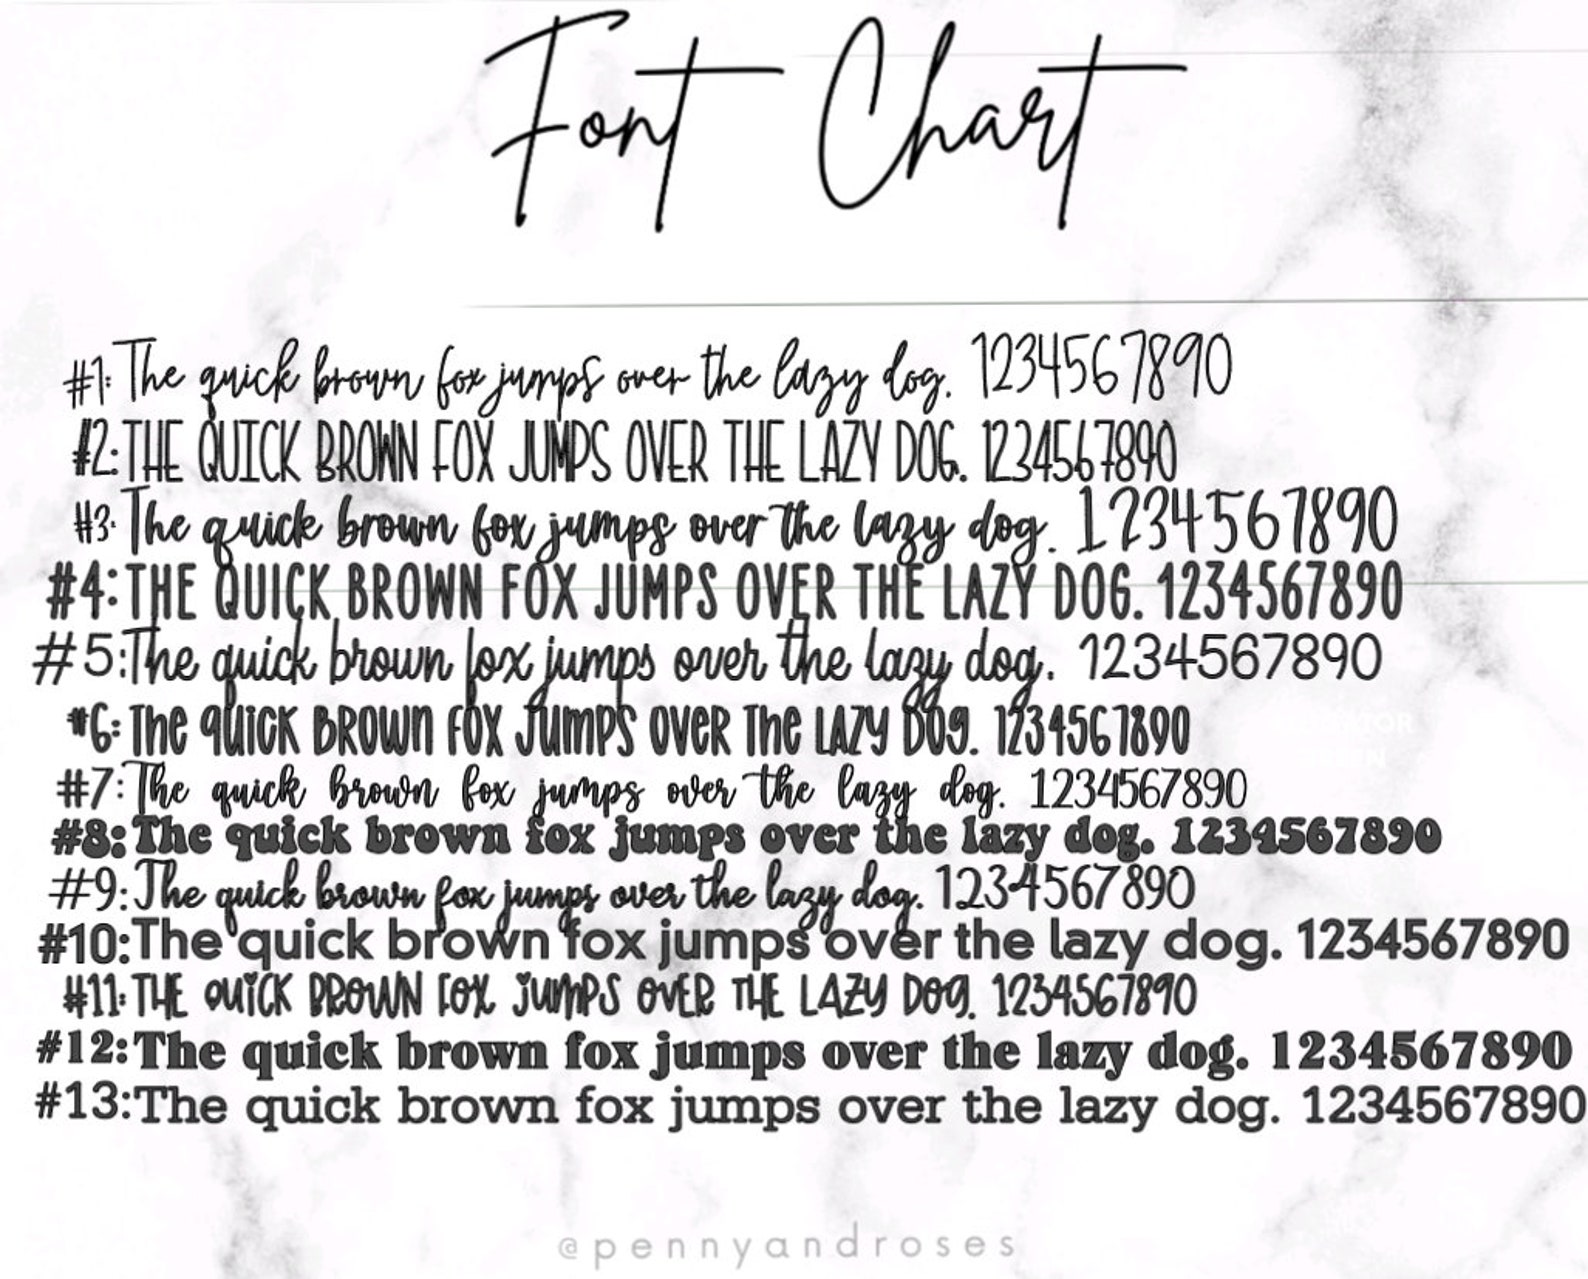 Font Chart
#1: The quick brown fox jumps over the lazy dog. 1234567890
#2: THE QUICK BROWN FOX JUMPS OVER THE LAZY DOG. 1234567890
#3: The quick brown fox jumps over the lazy dog. 1234567890
#4: THE QUICK BROWN FOX JUMPS OVER THE LAZY DOG. 1234567890
#5: The quick brown fox jumps over the lazy dog. 1234567890
#6: The quick brown fox jumps over the lazy dog. 1234567890
#7: The quick brown fox jumps over the lazy dog. 1234567890
#8: The quick brown fox jumps over the lazy dog. 1234567890
#9: The quick brown fox jumps over the lazy dog. 1234567890
#10: The quick brown fox jumps over the lazy dog. 1234567890
#11: THE QUICK BROWN FOX JUMPS OVER THE LAZY DOG. 1234567890
#12: The quick brown fox jumps over the lazy dog. 1234567890
#13: The quick brown fox jumps over the lazy dog. 1234567890
@pennyandroses